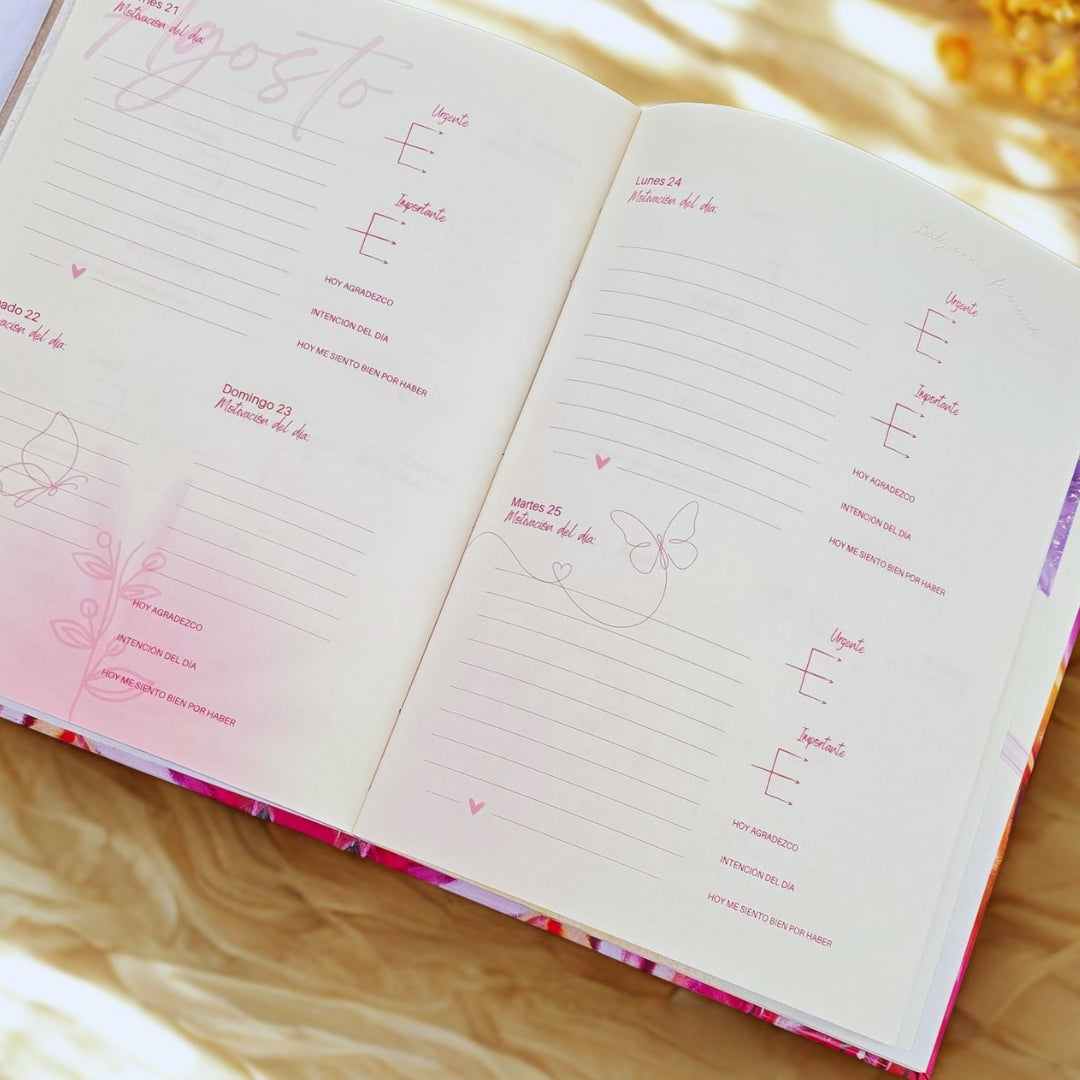 Agosto
Motivación del día:
Urgente
Importante
HOY AGRADEZCO
INTENCIÓN DEL DÍA
HOY ME SIENTO BIEN POR HABER
22
día:
Domingo 23
Motivación del día:
HOY AGRADEZCO
INTENCIÓN DEL DÍA
HOY ME SIENTO BIEN POR HABER
Lunes 24
Motivación del día:
Baby
Urgente
Importante
HOY AGRADEZCO
INTENCIÓN DEL DÍA
HOY ME SIENTO BIEN POR HABER
Martes 25
Motivación del día:
Urgente
Importante
HOY AGRADEZCO
INTENCIÓN DEL DÍA
HOY ME SIENTO BIEN POR HABER